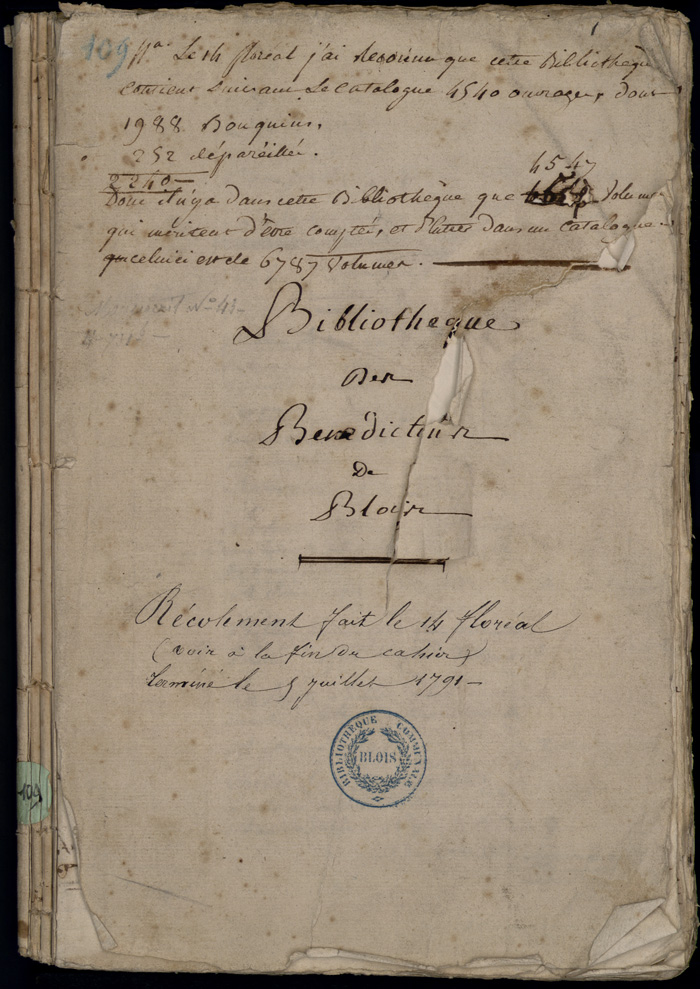 109
Na. Le 14 floréal j'ai reconnu que cette Bibliothèque
contient suivant Le catalogue 4540 ouvrages, dont
1988 Bouquins,
252 dépareillé.
2240
4547
Donc il n'y a dans cette Bibliothèque que Volumes
qui méritent d'être comptés, et Portés dans un Catalogue.
celui ci est de 6787 Volumes.
Manuscrit No 41
Bibliotheque
Des
Benédictins
De
Blois
Récolement fait le 14 floréal
(voir à la fin du cahier)
terminé le 5 juillet 1791
BIBLIOTHÈQUE COMMUNALE
BLOIS
109